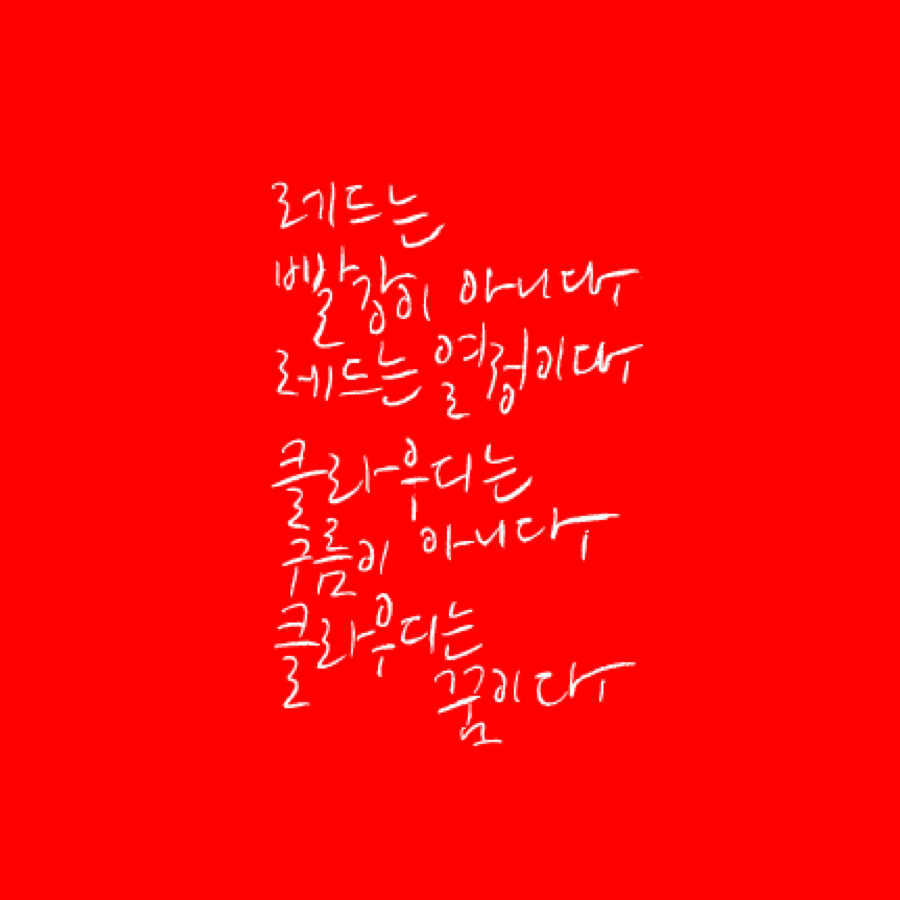 레드는
빨강이 아니다
레드는 열정이다
클라우디는
구름이 아니다
클라우디는
꿈이다